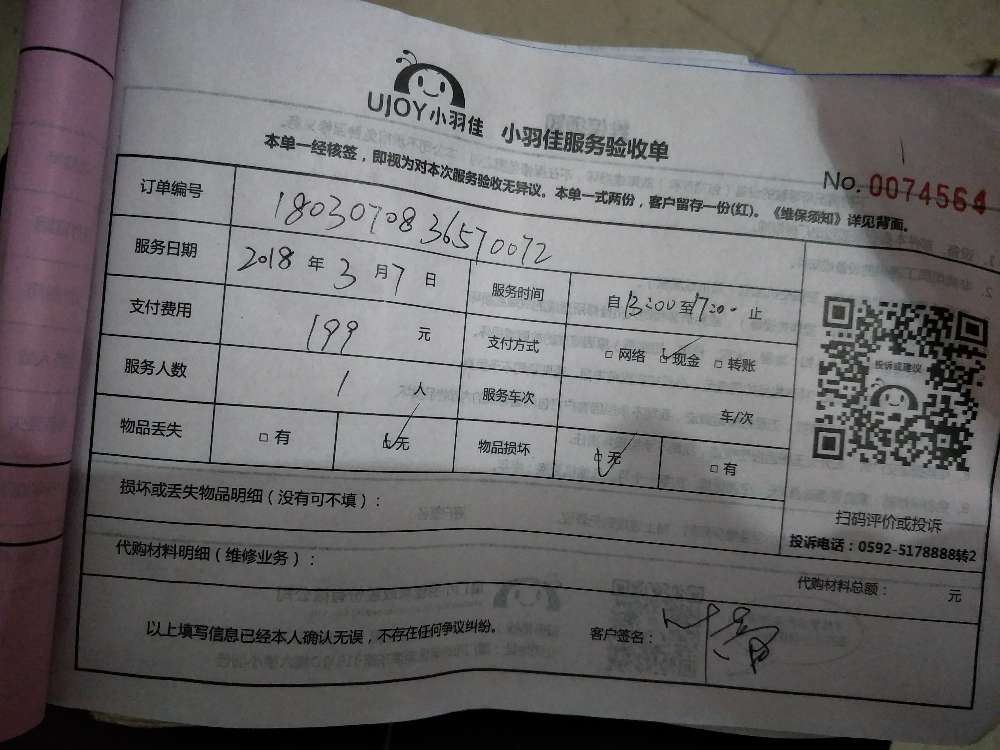 UJOY小羽佳 小羽佳服务验收单
No. 0074564
本单一经核签，即视为对本次服务验收无异议。本单一式两份，客户留存一份(红)。《维保须知》详见背面。
订单编号 1803070836570072
服务日期 2018 年 3 月 7 日 服务时间 自 13:00 至 17:00 止
支付费用 199 元 支付方式 □ 网络 ☑ 现金 □ 转账
服务人数 1 人 服务车次 车/次
物品丢失 □ 有 ☑ 无 物品损坏 ☑ 无 □ 有
投诉或建议
扫码评价或投诉
投诉电话：0592-5178888转2
损坏或丢失物品明细（没有可不填）：
代购材料明细（维修业务）： 代购材料总额： 元
以上填写信息已经本人确认无误，不存在任何争议纠纷。 客户签名：